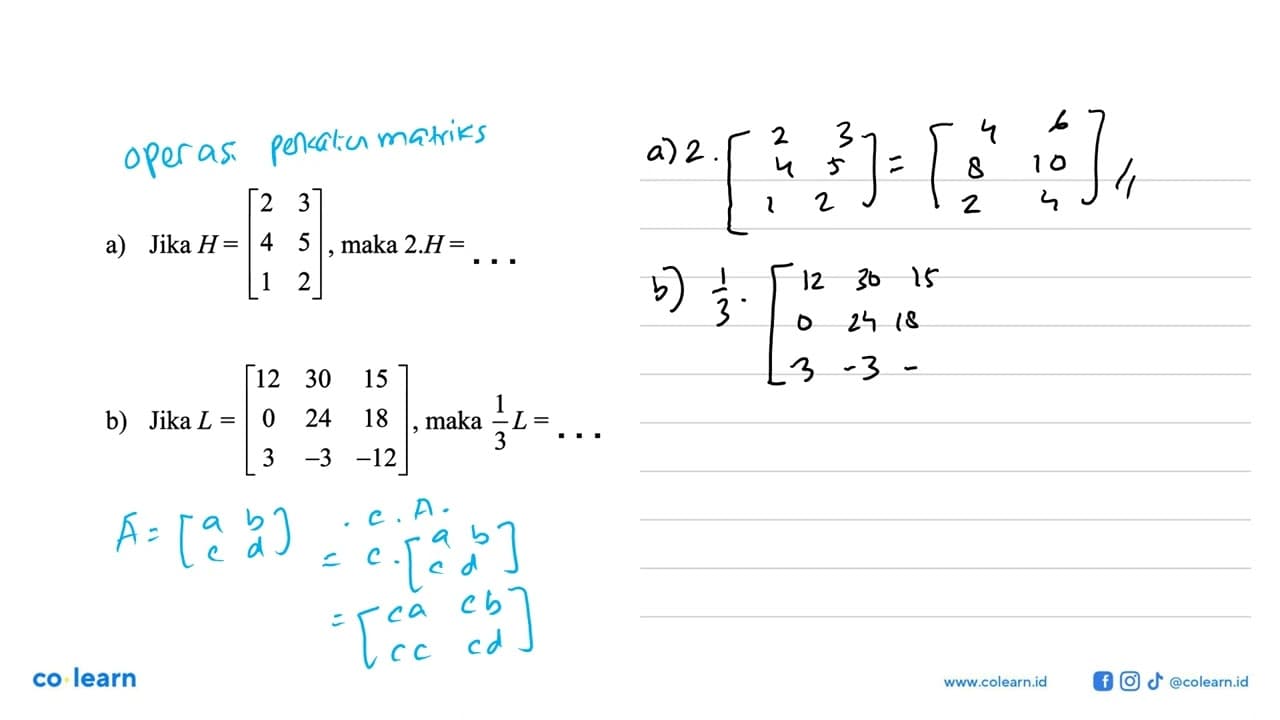 operasi perkalian matriks
a) Jika H = [2 3
4 5
1 2], maka 2.H = ...
b) Jika L = [12 30 15
0 24 18
3 –3 –12], maka 1/3 L = ...
A = [a b
c d]
. c . A .
= c . [a b
c d]
= [ca cb
cc cd]
a) 2 . [2 3
4 5
1 2] = [4 6
8 10
2 4] //
b) 1/3 . [12 30 15
0 24 18
3 -3 -
co·learn
www.colearn.id
@colearn.id